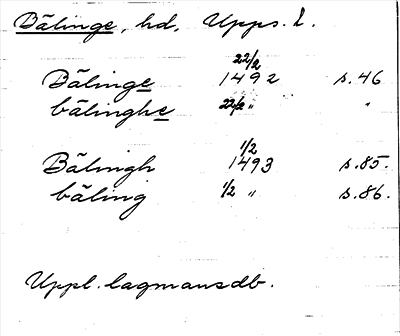 Bälinge, hd, Upps. l.
Bälinge 22/2 1492 s. 46
bälinghe 22/2 " "
Bälingh 1/2 1493 s. 85.
bäling 1/2 " s. 86.
Uppl. lagmansdb.